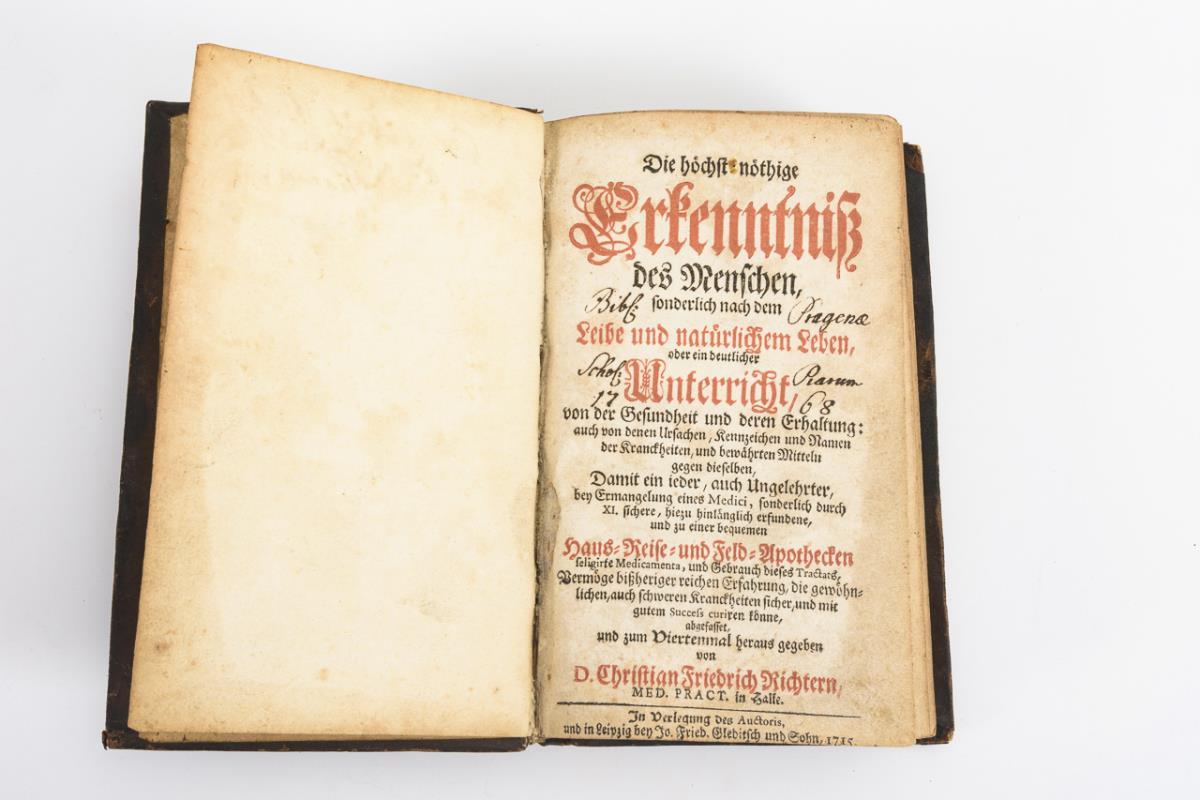 Die höchst-nöthige
Erkenntniß
des Menschen,
sonderlich nach dem
Bibl: Pragenæ
Leibe und natürlichem Leben,
oder ein deutlicher
Schol: Piarum
Unterricht,
17 68
von der Gesundheit und deren Erhaltung:
auch von denen Ursachen, Kennzeichen und Namen
der Kranckheiten, und bewährten Mitteln
gegen dieselben,
Damit ein ieder, auch Ungelehrter,
bey Ermangelung eines Medici, sonderlich durch
XI. sichere, hiezu hinlänglich erfundene,
und zu einer bequemen
Haus-Reise-und Feld-Apothecken
seligirte Medicamenta, und Gebrauch dieses Tractats,
Vermöge bißheriger reichen Erfahrung, die gewöhn-
lichen, auch schweren Kranckheiten sicher, und mit
gutem Success curiren könne,
abgefasset,
und zum Viertenmal heraus gegeben
von
D. Christian Friedrich Richtern,
MED. PRACT. in Halle.
In Verlegung des Auctoris,
und in Leipzig bey Jo. Fried. Gleditsch und Sohn, 1715.